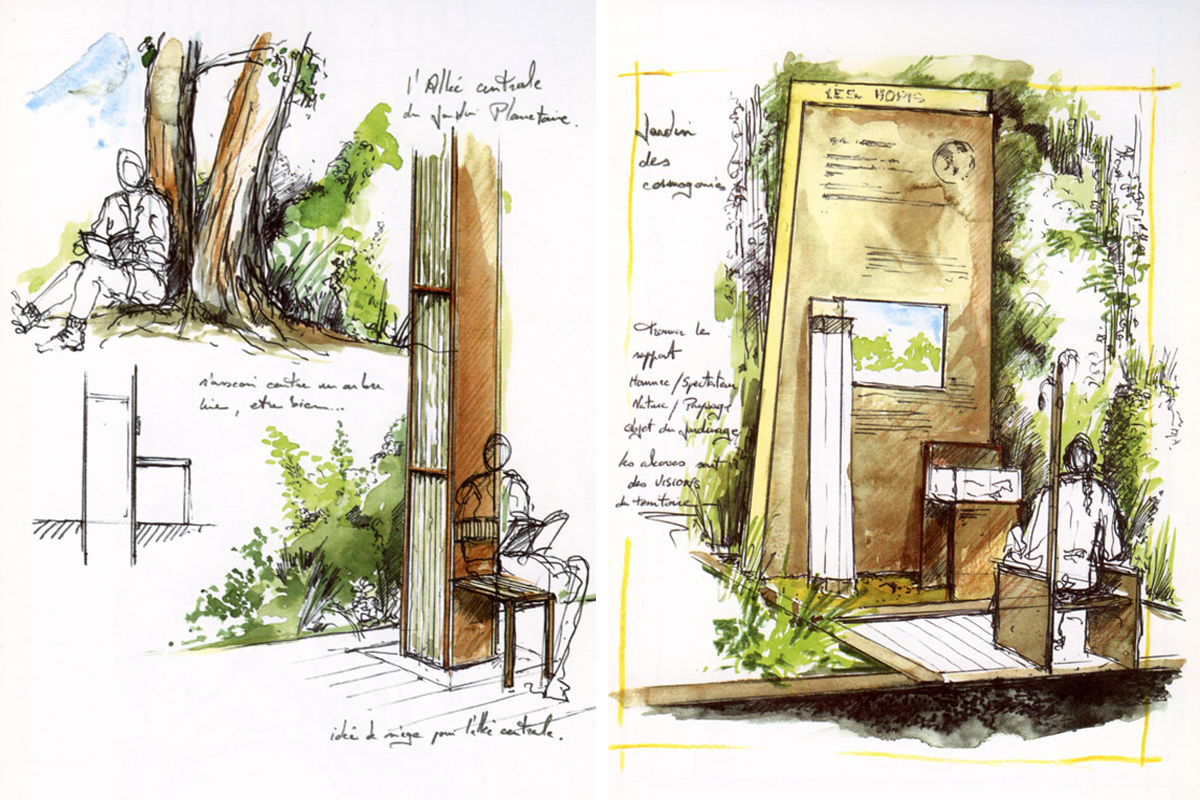 l'Allée centrale
du Jardin Planétaire.
s'asseoir contre un arbre
lire, etre bien...
idée de siège pour l'allée centrale.
LES HOPIS
Jardin
des
cosmogonies
Trouver le
rapport
Homme / Spectateur
Nature / Paysage
objet du jardinage
les alcoves sont
des VISIONS
du territoire